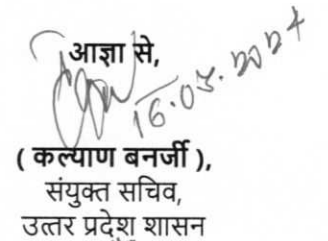 आज्ञा से,
16.05.2024
( कल्याण बनर्जी ),
संयुक्त सचिव,
उत्तर प्रदेश शासन